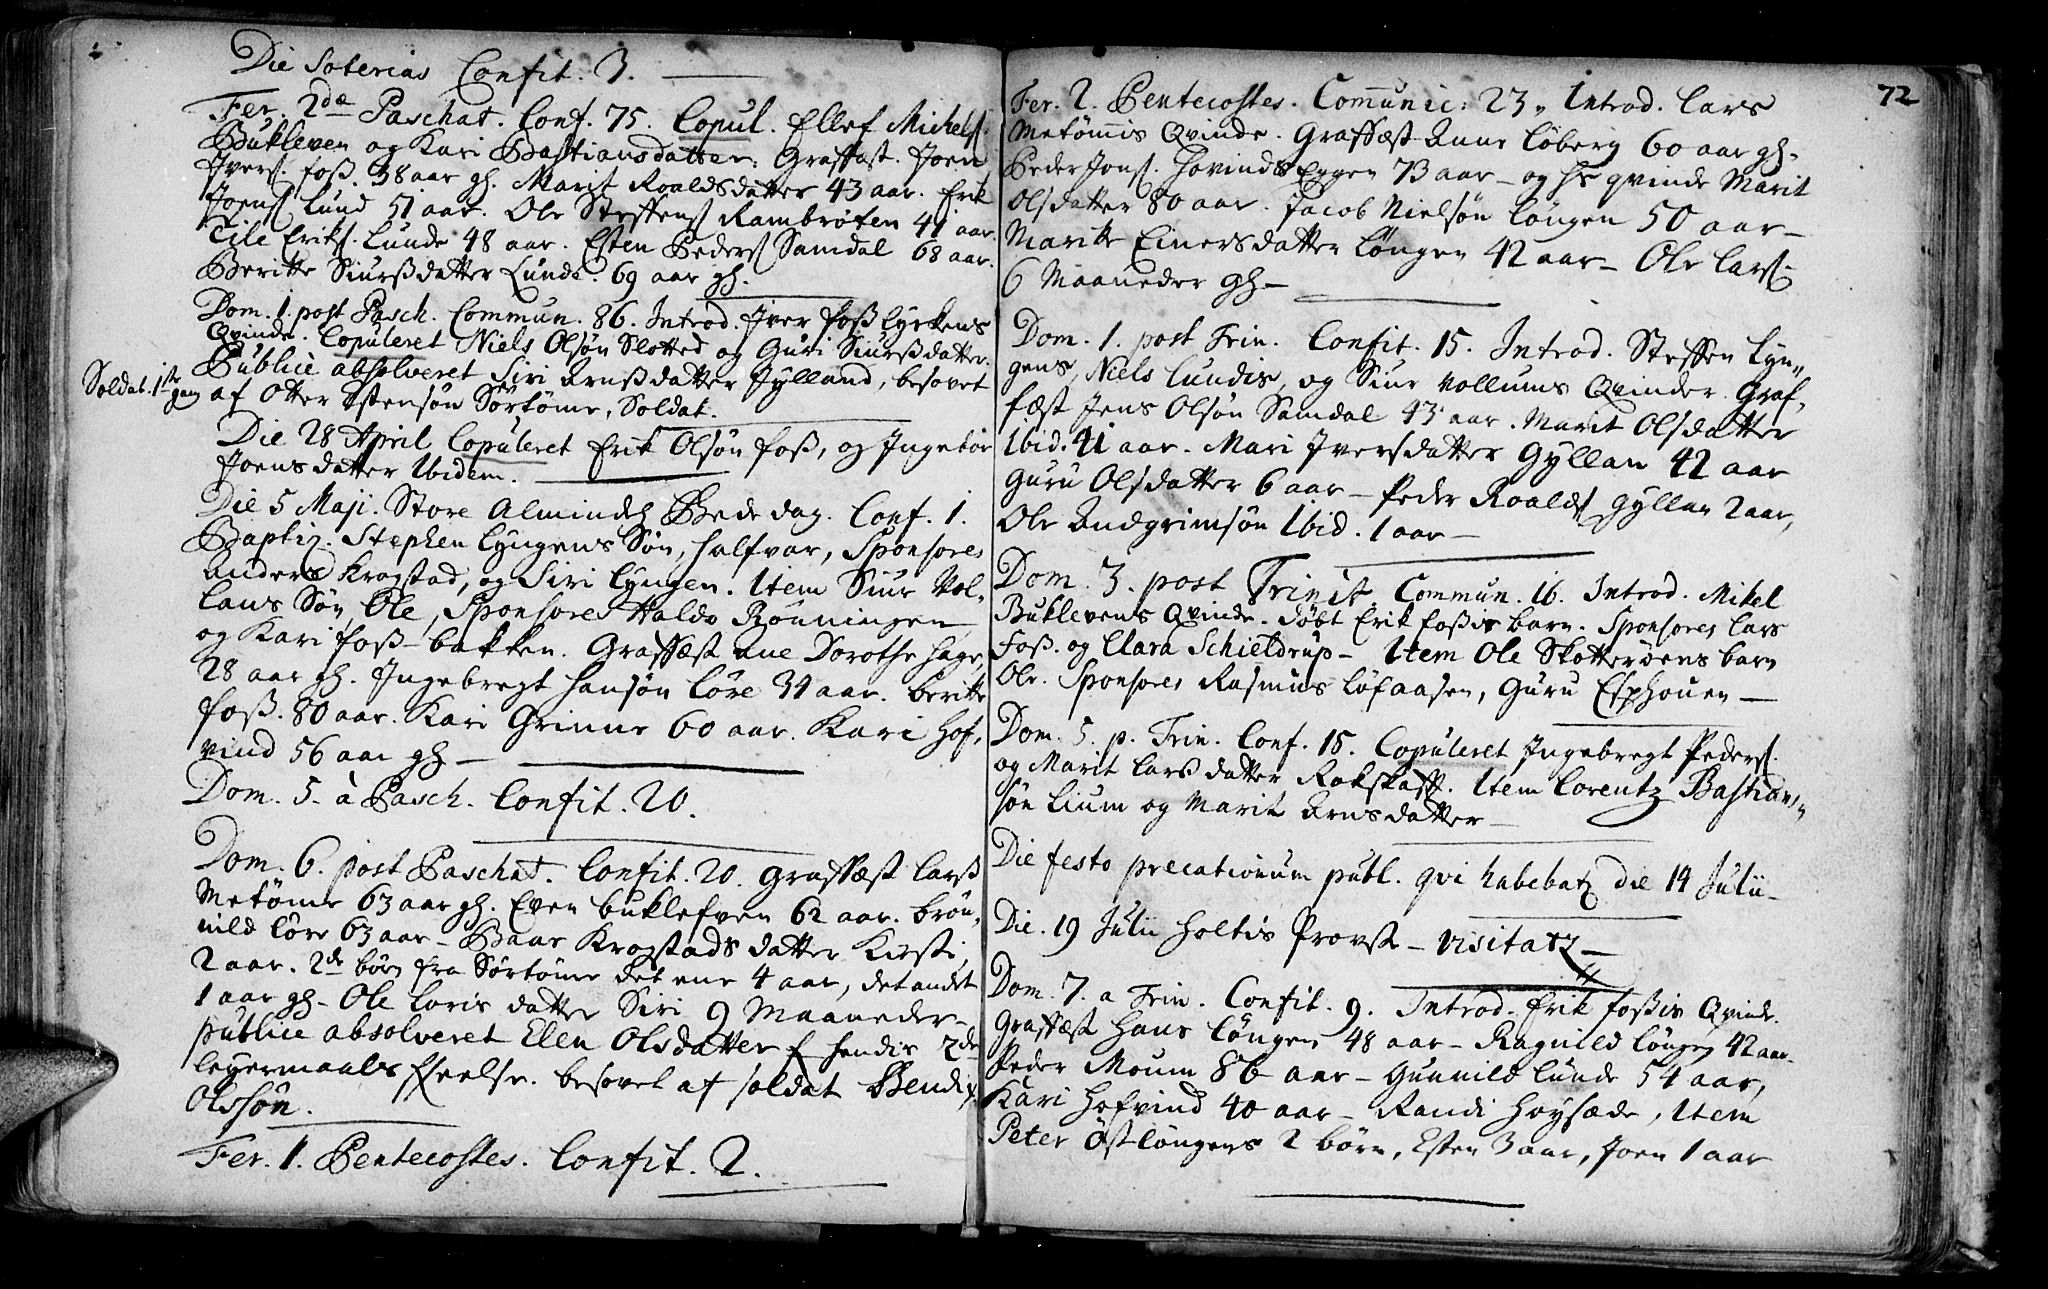 Die Soterias Confit. 3.
Fer. 2dæ Paschat. Conf. 75. Copul. Ellef Michels.
Bukleven og Kari Bastiansdatter. Graffæst. Joen
Ivers. Foss. 38 aar gl. Marit Roaldsdatter 43 aar. Erik
Joens. Lund 51 aar. Ole Steffens. Rambrøten 41 aar.
Eriks. Lunde 48 aar. Esten Peders. Samdal 68 aar.
Beritte Siurssdatter Lunde. 69 aar gl.
Dom. 1. post Pasch. Commun. 86. Introd. Iver Foss Lyckens
Qvinde. Copuleret Niels Olsøn Slotted og Guri Siurssdatter.
Publice absolveret Siri Arnssdatter Jylland, besovet
af Otter Estensøn Sørtøme, Soldat.
Soldat. 1ste gang
Die 28 April Copuleret Erik Olsøn Foss, og Ingebor
Joensdatter Ibidem.
Die 5 Maji. Store Almindel. Bededag. Conf. 1.
Baptiz. Stephen Lyngens Søn, Halfvar, Sponsores
Anders Krogstad, og Siri Lyngen. Item Siur Vol-
lans Søn, Ole, Sponsores Haldo Rønningen
og Kari Foss-bakken. Graffæst Ane Dorothe Hage
28 aar gl. Ingebregt Hansøn Løre 34 aar. Beritte
Foss. 80 aar. Kari Grinne 60 aar. Kari Hof-
vind 56 aar gl –
Dom. 5. à Pasch. Confit. 20.
Dom. 6. post Paschat. Confit. 20. Graffæst Larss
Metøme 63 aar gl. Even Buklefven 62 aar. Brøn-
nild Løre 63 aar – Baar Krogstads datter Kirsti,
2 aar. 2de børn fra Sørtøme det ene 4 aar, det andet
1 aar gl – Ole Loris datter Siri 9 Maaneder –
Publice absolveret Elen Olsdatter f hendis 2de
leyermaals feelse. besovet af soldat Bendix
Olssøn.
Fer. 1. Pentecostes. Confit. 2.
72
Fer. 2. Pentecostes. Communic: 23. Introd. Lars
Metømis Qvinde. Graffæst Anne Løberg 60 aar gl.
Peder Jons. Hovinds Eggen 73 aar – og hs qvinde Marit
Olsdatter 80 aar. Jacob Nielsøn Løngen 50 aar –
Marite Einersdatter Løngen 42 aar – Ole Lars.
6 Maaneder gl –
Dom. 1. post Trin. Confit. 15. Introd. Steffen Lyn-
gens, Niels Lundis, og Siur Vollums Qvinder. Graf-
fæst Jens Olsøn Samdal 43 aar. Marit Olsdatter
Ibid. 41 aar. Mari Iversdatter Gyllan 42 aar
Guru Olsdatter 6 aar – Peder Roalds. Gyllan 2 aar,
Ole Andgrimsøn Ibid. 1 aar –
Dom. 3. post Trinit. Commun. 16. Introd. Mikel
Buklevens Qvinde. Døbt Erik Fossis barn. Sponsores Lars
Foss. og Clara Schieldrup – Item Ole Skotterøens barn
Ole. Sponsores Rasmus Løfaasen, Guru Esphouen –
Dom. 5. p. Trin. Conf. 15. Copuleret Ingebregt Peders.
og Marit Larssdatter Rokskaft. Item Lorentz Bastian-
søn Lium og Marit Arnsdatter –
Die festo precationum publ. qvi habebatz die 14 Julii –
Die. 19 Julii Holtis Provst – visitatz –
Dom. 7. a Trin. Confit. 9. Introd. Erik Fossis Qvinde.
Graffæst Hans Løngen 48 aar – Ragnild Løngen 42 aar.
Peder Moum 86 aar – Gunnild Lunde 54 aar,
Kari Hofvind 40 aar – Randi Høysæde, Item
Peter Østløngens 2 børn, Esten 3 aar, Joen 1 aar